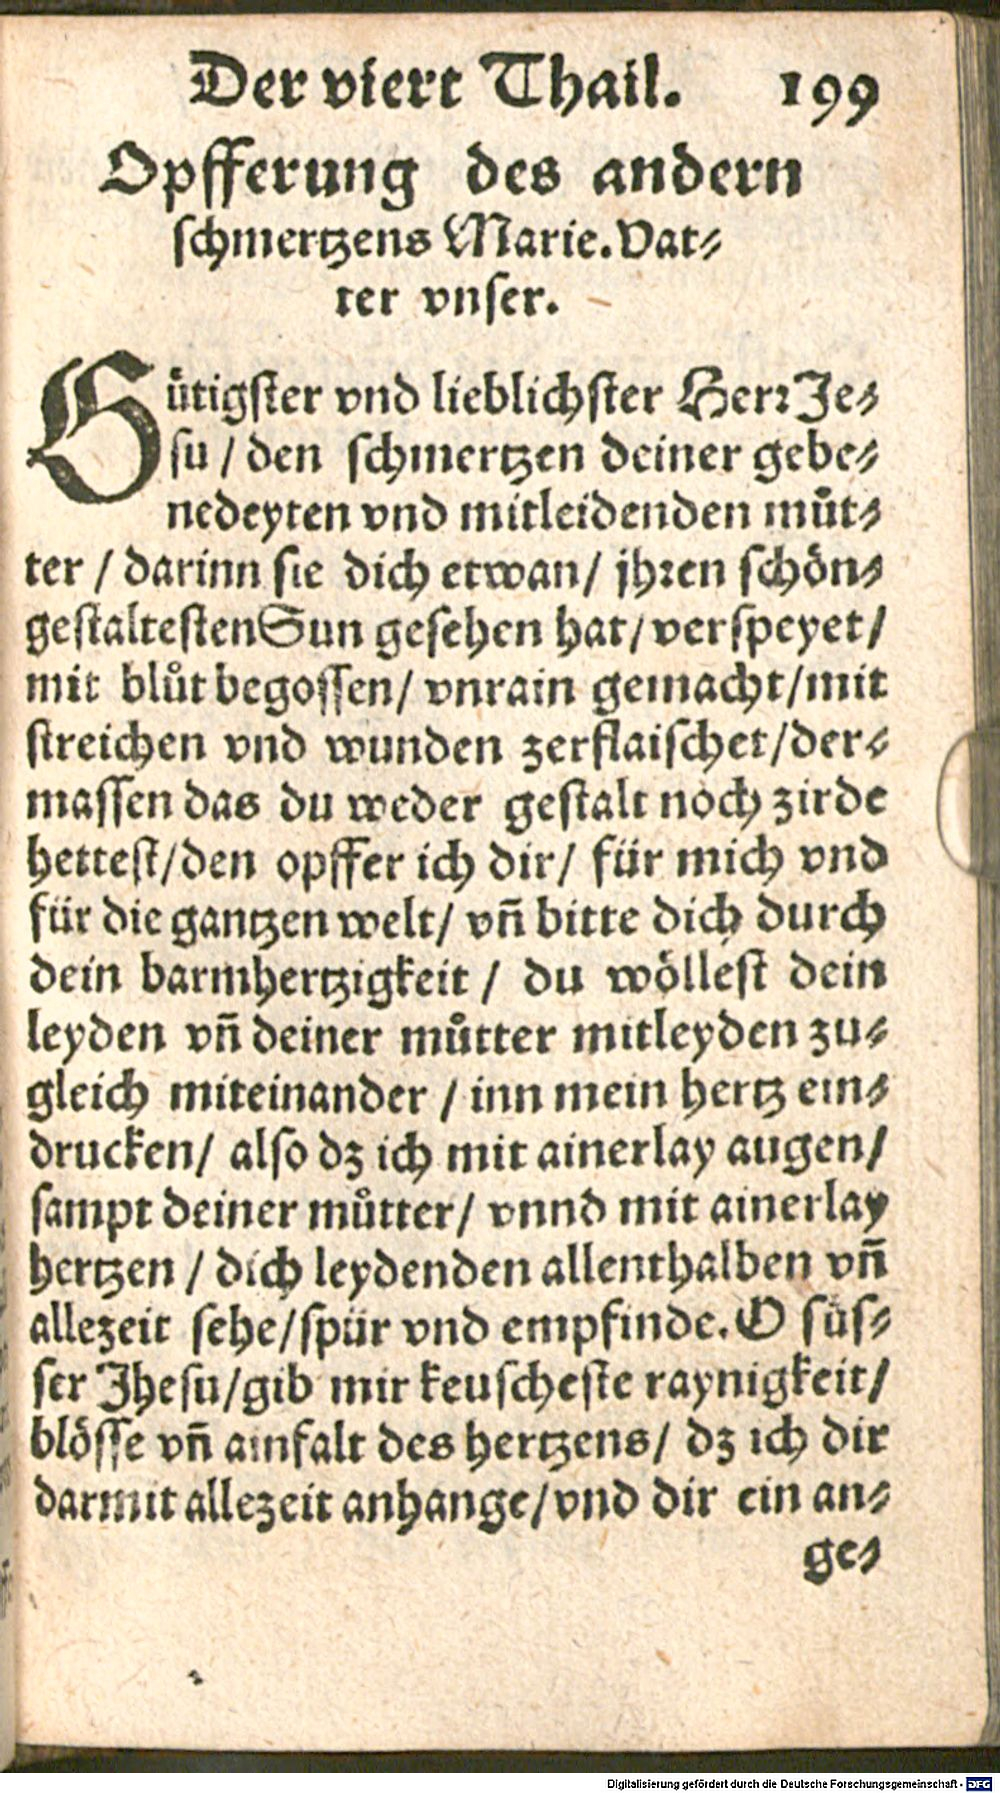 Der viert Thail. 199
Opfferung des andern
schmertzens Marie. Vat⸗
ter vnser.
Gütigster vnd lieblichster Herr Je⸗
su / den schmertzen deiner gebe⸗
nedeyten vnd mitleidenden muͦt⸗
ter / darinn sie dich etwan / jhren schön⸗
gestaltesten Sun gesehen hat / verspeyet /
mit bluͦt begossen / vnrain gemacht / mit
streichen vnd wunden zerflaischet / der⸗
massen das du weder gestalt noch zirde
hettest / den opffer ich dir / für mich vnd
für die gantzen welt / vn̄ bitte dich durch
dein barmhertzigkeit / du wöllest dein
leyden vn̄ deiner muͦtter mitleyden zu⸗
gleich miteinander / inn mein hertz ein⸗
drucken / also dz ich mit ainerlay augen /
sampt deiner muͦtter / vnnd mit ainerlay
hertzen / dich leydenden allenthalben vn̄
allezeit sehe / spür vnd empfinde. O süs⸗
ser Jhesu / gib mir keuscheste raynigkeit /
blösse vn̄ ainfalt des hertzens / dz ich dir
darmit allezeit anhange / vnd dir ein an⸗
ge⸗
Digitalisierung gefördert durch die Deutsche Forschungsgemeinschaft - DFG